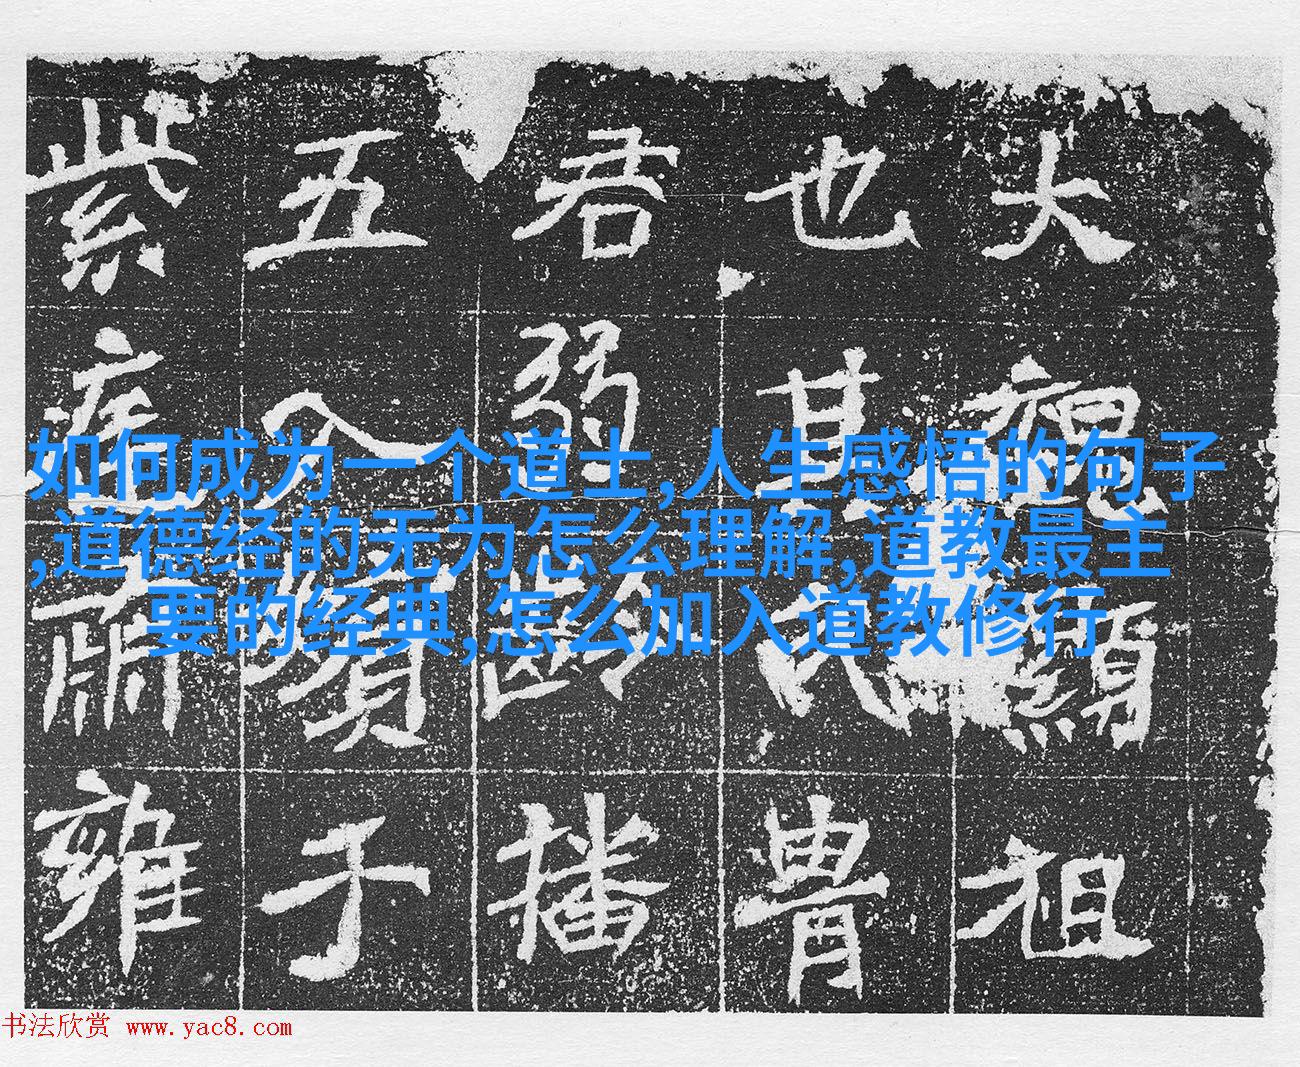 大顯祖
也其胄
君弱齡播
五入于
紫庭肅雍
如何成为一个道士,人生感悟的句子
,道德经的无为怎么理解,道教最主
要的经典,怎么加入道教修行
书法欣赏 www.yac8.com